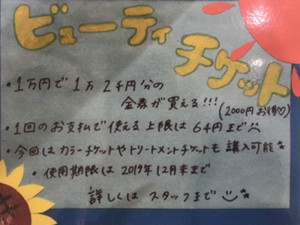 ビューティ
チケット
・1万円で1万2千円分の
金券が買える!!!
(2000円お得♡)
・1回のお支払で使える上限は6千円まで
・今回はカラーチケットやトリートメントチケットも購入可能
・使用期限は2019年12月末まで
詳しくはスタッフまで